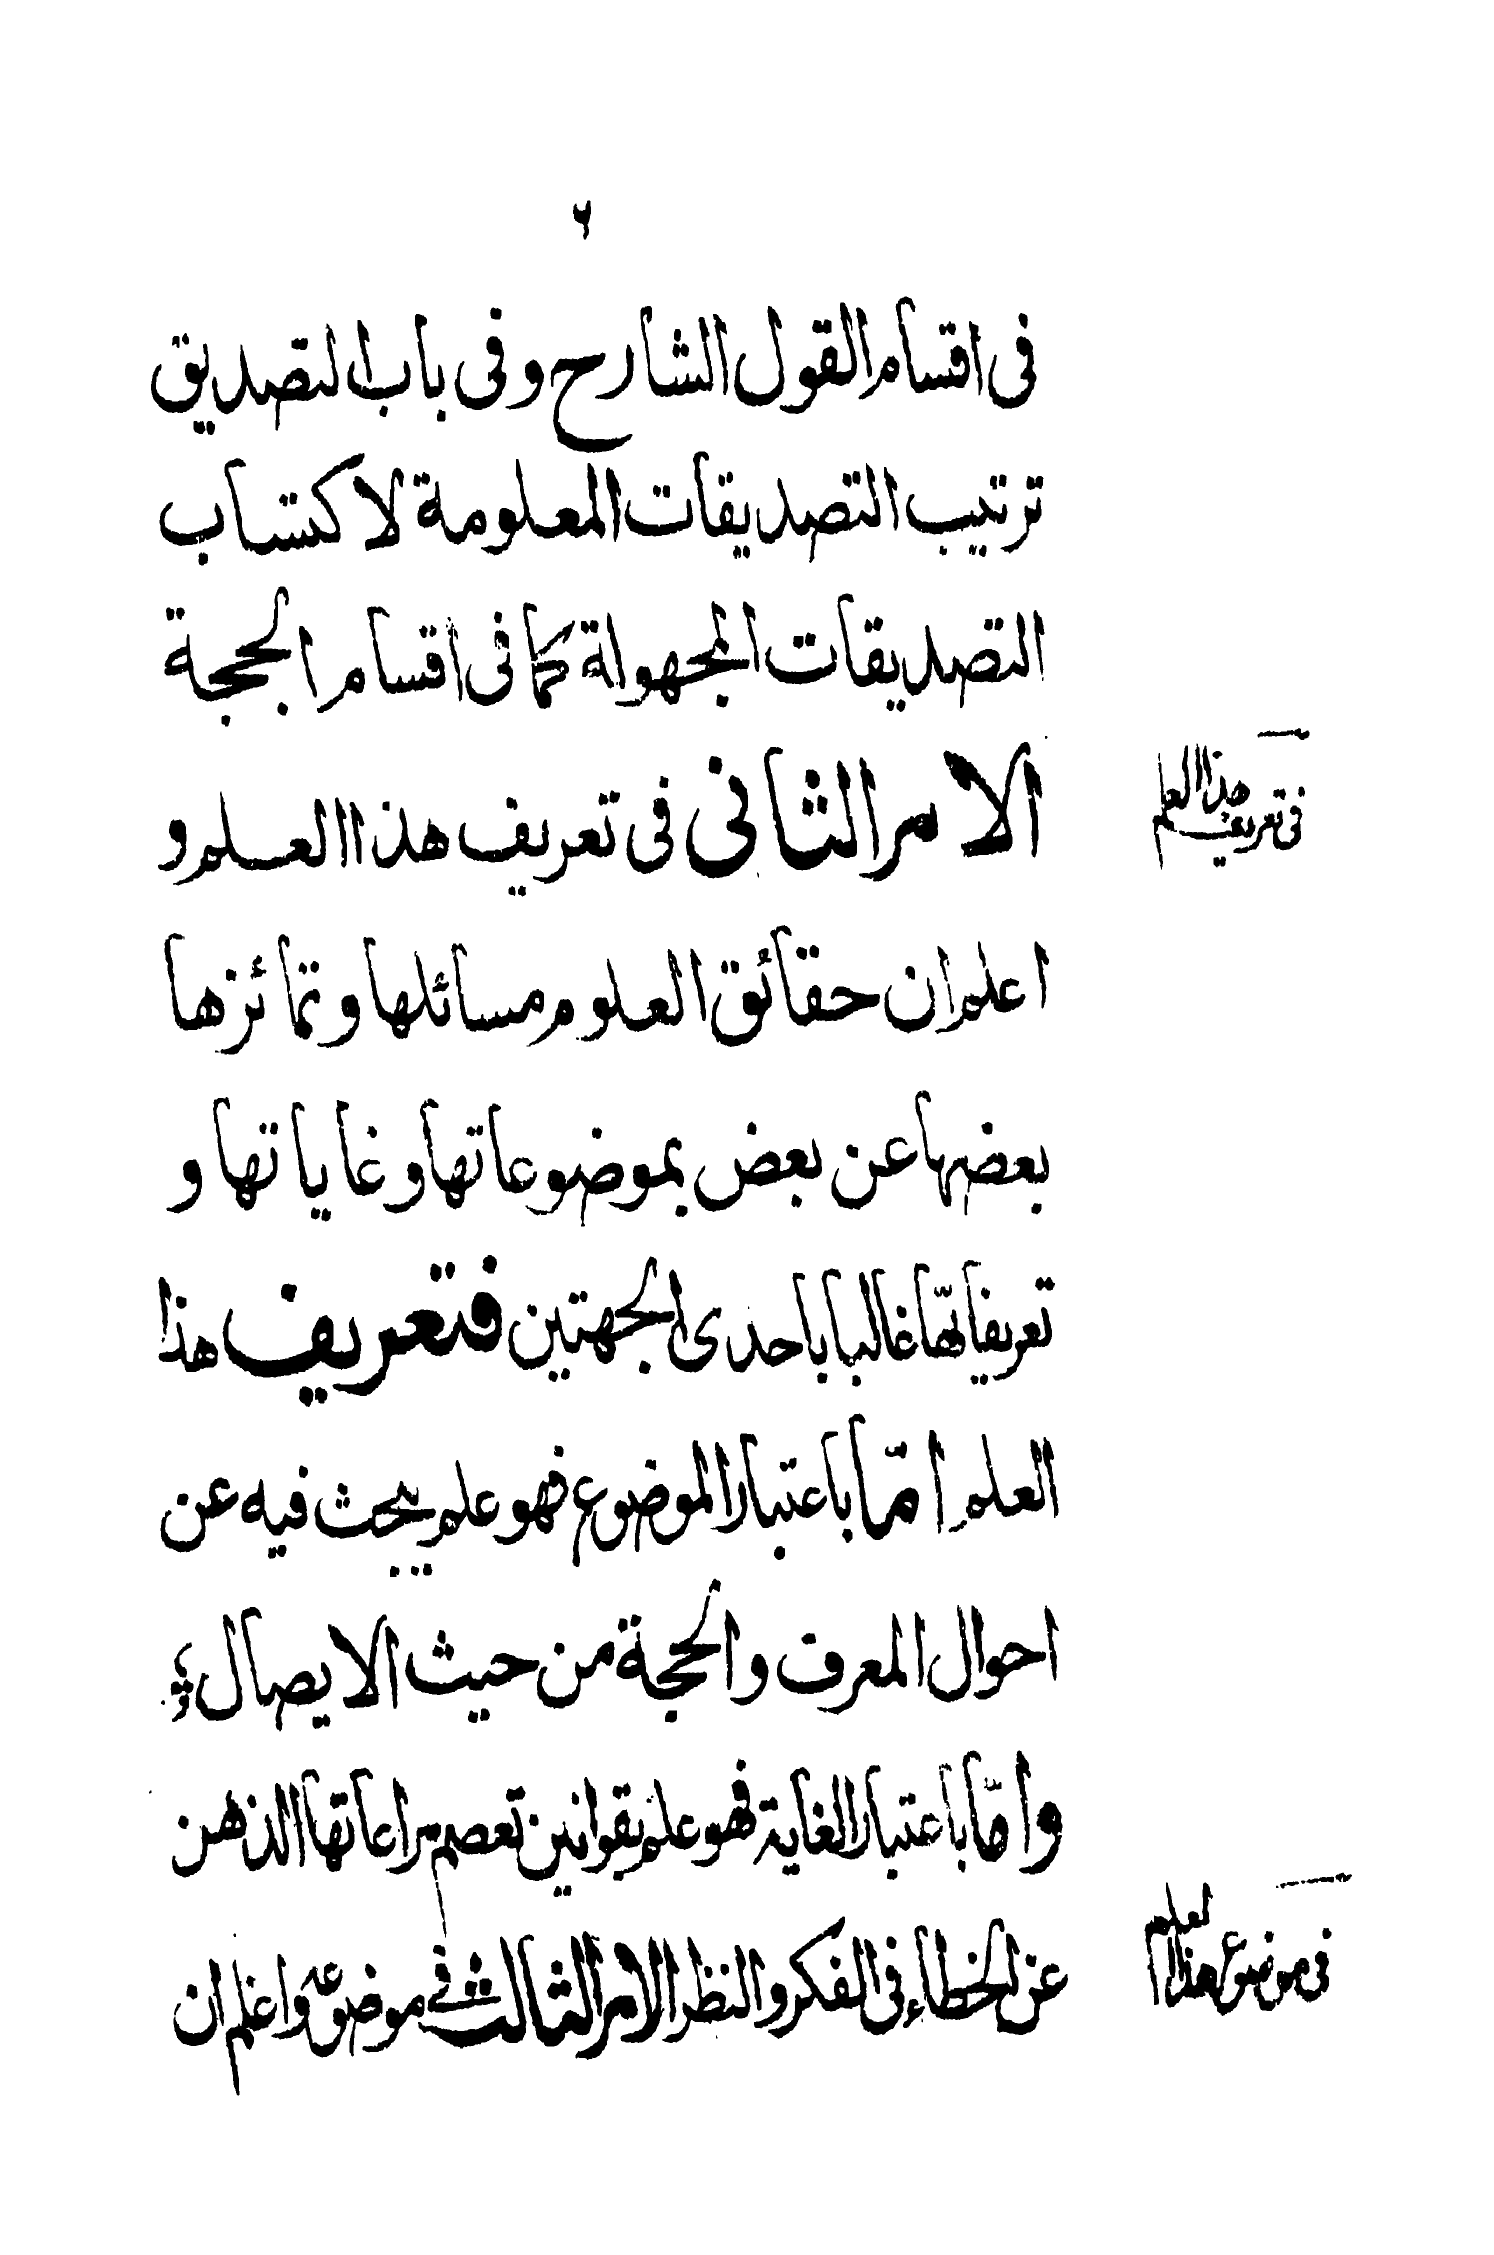 ٢
فى اقسام القول الشارح و فى باب التصديق
ترتيب التصديقات المعلومة لاكتساب
التصديقات المجهولة كما فى اقسام الحجة
الامر الثانى فى تعريف هذا العلم و
فى تعريف هذا العلم
اعلم ان حقائق العلوم مسائلها و تمائزها
بعضها عن بعض بموضوعاتها و غاياتها و
تعريفاتها غالبا باحدى الجهتين فتعريف هذا
العلم امّا باعتبار الموضوع فهو علم يبحث فيه عن
احوال المعرف والحجة من حيث الايصال
وامّا باعتبار الغاية فهو علم بقوانين تعصم مراعاتها الذهن
عن الخطاء فى الفكر والنظر الامر الثالث فى موضوعه واعلم ان
فى موضوع هذا العلم